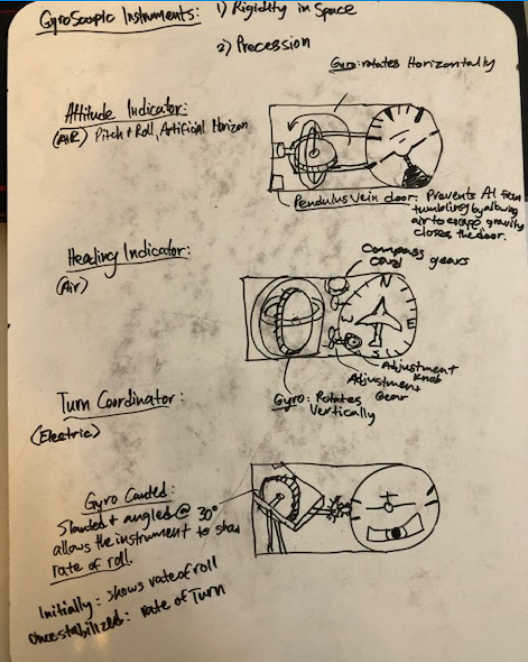 GyroScopic Instruments: 1) Rigidity in Space
2) Precession
Gyro: rotates Horizontally
Attitude Indicator:
(AIR) Pitch & Roll, Artificial Horizon
Pendulus Vein door: Prevents AI from
tumbling by allowing
air to escape, gravity
closes the door.
Heading Indicator:
(Air)
Compass
card gears
N
E
S
W
Adjustment
Knob
Adjustment
Gear
Gyro: Rotates
Vertically
Turn Coordinator:
(Electric)
Gyro Canted:
Slanted & angled @ 30°
allows the instrument to show
rate of roll.
Initially: shows rate of roll
Once stabilized: rate of Turn